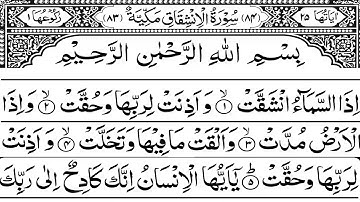 اٰیَاتُهَا ٢٥ (٨٤) سُوْرَةُ الْاِنْشِقَاقِ مَكِّیَّةٌ (٨٣) رُكُوْعُهَا
بِسْمِ اللّٰهِ الرَّحْمٰنِ الرَّحِیْمِ
اِذَا السَّمَآءُ انْشَقَّتْ ۙ﴿١﴾ وَ اَذِنَتْ لِرَبِّهَا وَحُقَّتْ ۙ﴿٢﴾ وَاِذَا
الْاَرْضُ مُدَّتْ ۙ﴿٣﴾ وَاَلْقَتْ مَا فِیْهَا وَتَخَلَّتْ ۙ﴿٤﴾ وَ اَذِنَتْ
لِرَبِّهَا وَحُقَّتْ ؕ﴿٥﴾ یٰۤاَیُّهَا الْاِنْسَانُ اِنَّكَ كَادِحٌ اِلٰى رَبِّكَ